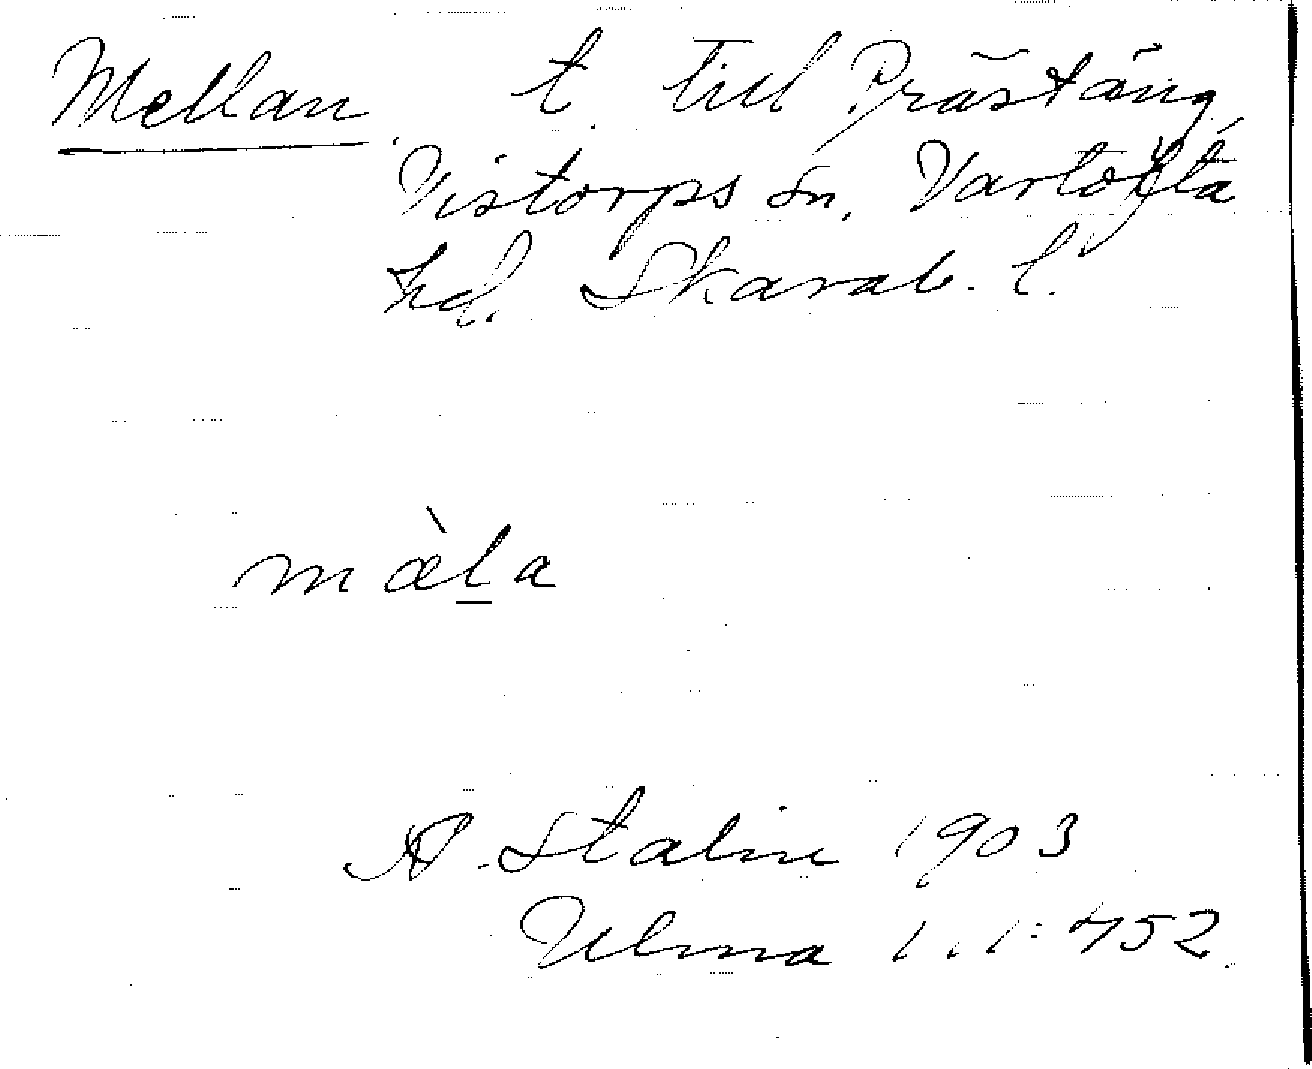 Mellan t. till Prästäng
Vistorps sn, Vartofta
hd. Skarab. l.
mæ̀la
A. Stalin 1903
Ulma 1.1:452